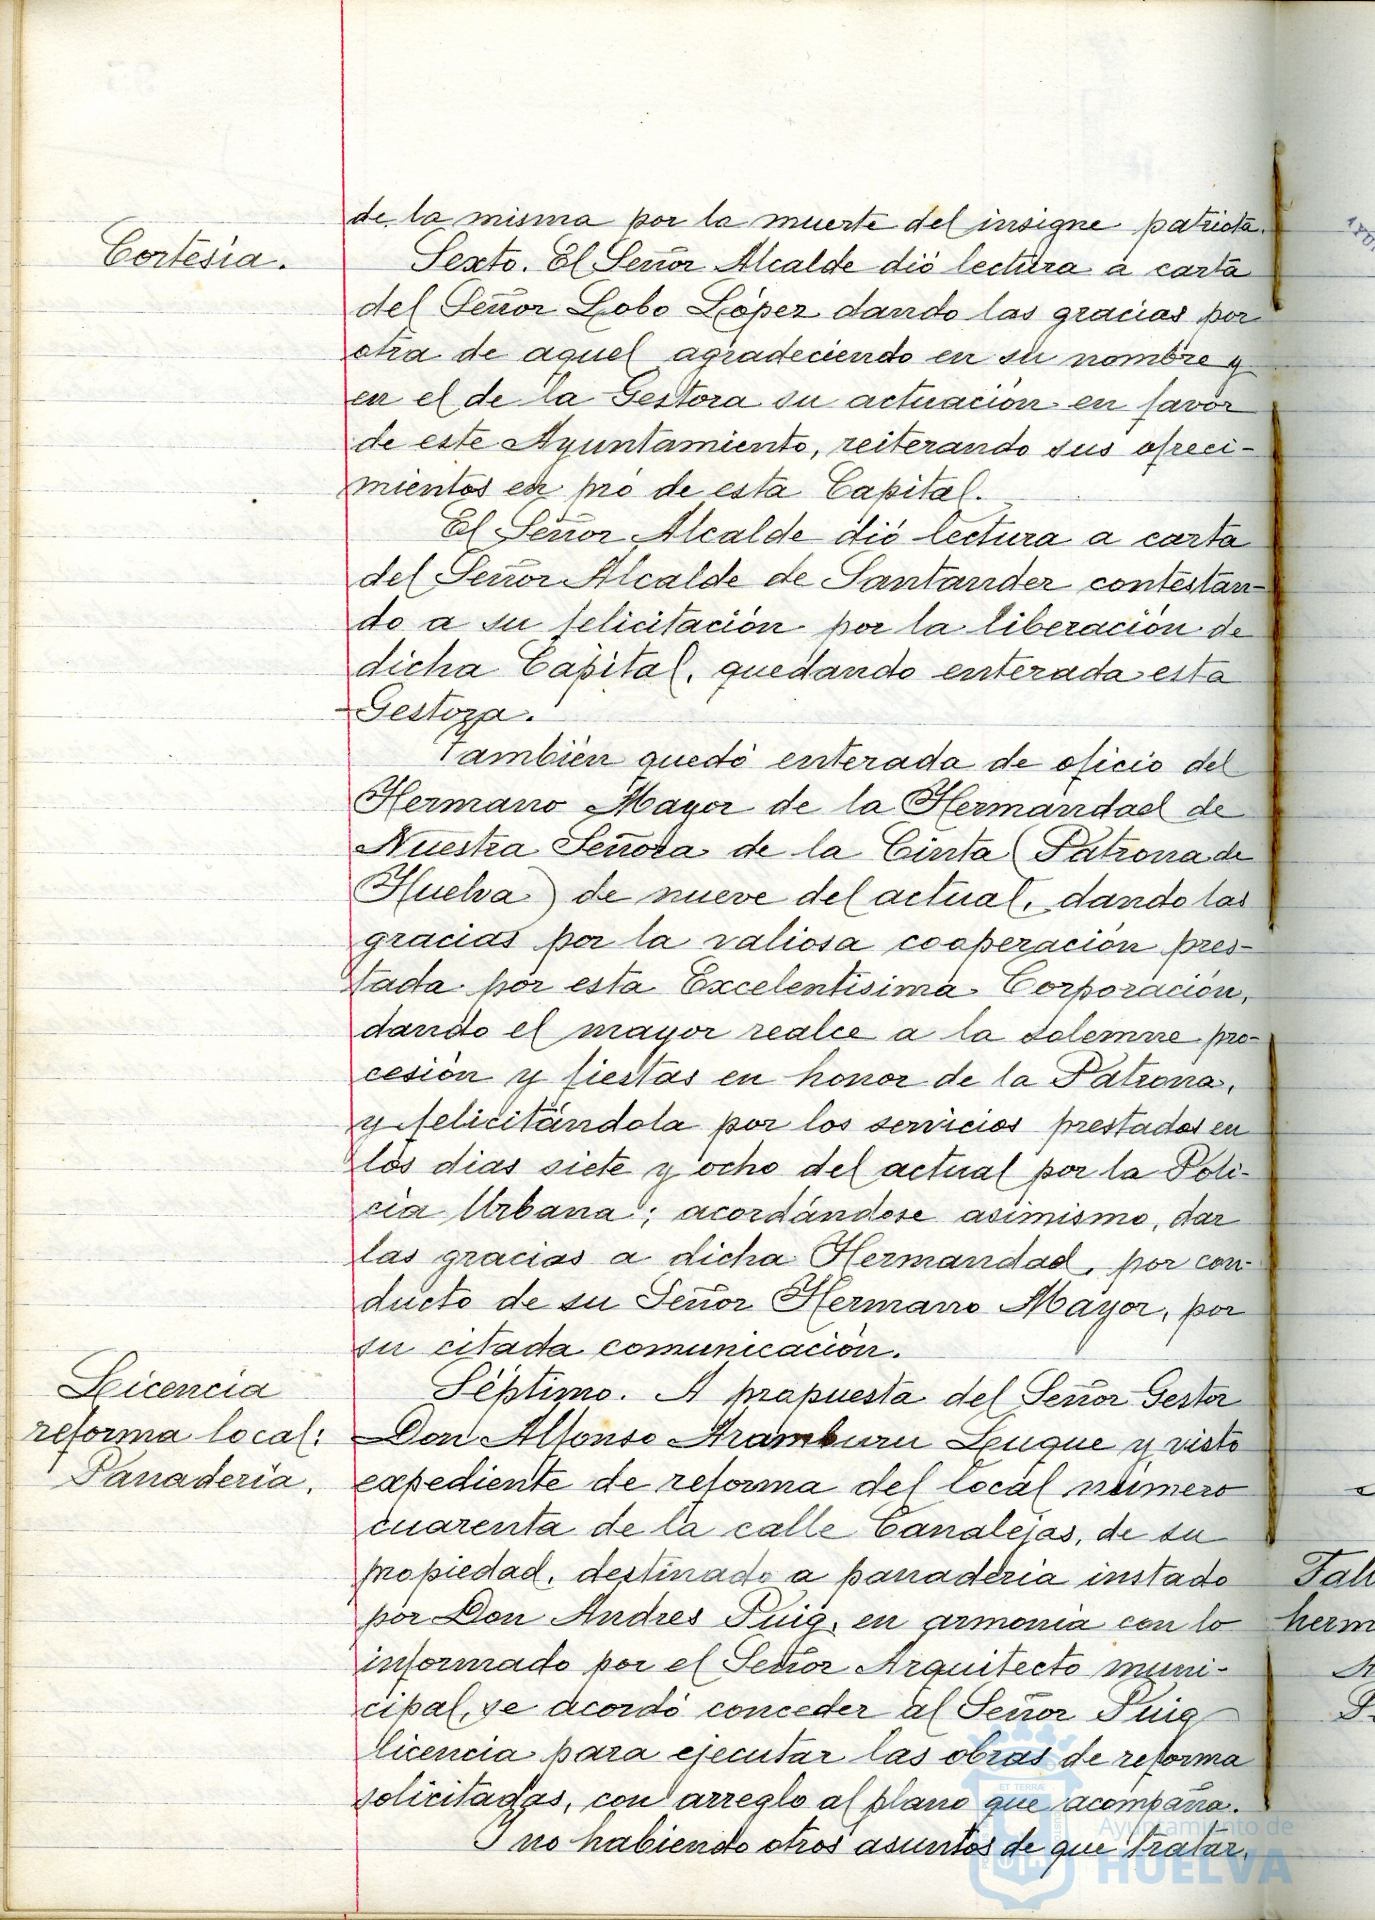 de la misma por la muerte del insigne patriota.
Cortesía.
Sexto. El Señor Alcalde dió lectura a carta
del Señor Lobo López dando las gracias por
otra de aquel agradeciendo en su nombre y
en el de la Gestora su actuación en favor
de este Ayuntamiento, reiterando sus ofreci-
mientos en pró de esta Capital.
El Señor Alcalde dió lectura a carta
del Señor Alcalde de Santander contestan-
do a su felicitación por la liberación de
dicha Capital, quedando enterada esta
Gestora.
También quedó enterada de oficio del
Hermano Mayor de la Hermandad de
Nuestra Señora de la Cinta (Patrona de
Huelva) de nueve del actual, dando las
gracias por la valiosa cooperación pres-
tada por esta Excelentísima Corporación,
dando el mayor realce a la solemne pro-
cesión y fiestas en honor de la Patrona,
y felicitándola por los servicios prestados en
los dias siete y ocho del actual por la Poli-
cía Urbana; acordándose asimismo, dar
las gracias a dicha Hermandad, por con-
ducto de su Señor Hermano Mayor, por
su citada comunicación.
Licencia
reforma local:
Panadería.
Séptimo. A propuesta del Señor Gestor
Don Alfonso Aramburu Luque y visto
expediente de reforma del local número
cuarenta de la calle Canalejas, de su
propiedad, destinado a panadería instado
por Don Andres Puig, en armonía con lo
informado por el Señor Arquitecto muni-
cipal, se acordó conceder al Señor Puig
licencia para ejecutar las obras de reforma
solicitadas, con arreglo al plano que acompaña.
Y no habiendo otros asuntos de que tratar,
Ayuntamiento de
HUELVA